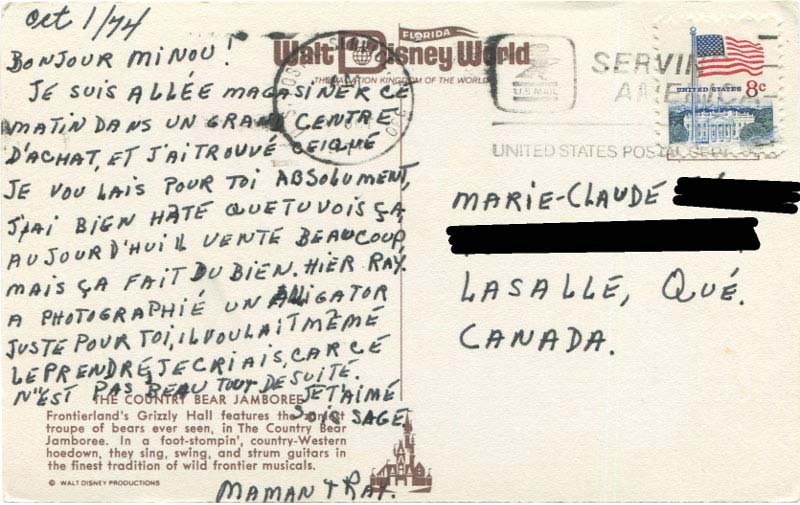 Oct 1/74
BONJOUR MINOU!
JE SUIS ALLÉE MAGASINER CE
MATIN DANS UN GRAND CENTRE
D'ACHAT, ET J'AI TROUVÉ CE QUE
JE VOULAIS POUR TOI ABSOLUMENT,
J'AI BIEN HATE QUE TU VOIS ÇA,
AUJOURD'HUI IL VENTE BEAUCOUP,
MAIS ÇA FAIT DU BIEN. HIER RAY.
A PHOTOGRAPHIÉ UN ALLIGATOR
JUSTE POUR TOI, IL VOULAIT MÊME
LE PRENDRE, JE CRIAIS, CAR CE
N'EST PAS BEAU TOUT DE SUITE.
JE T'AIME
SOIS SAGE.
MAMAN & RAY.
THE COUNTRY BEAR JAMBOREE
Frontierland's Grizzly Hall features the zaniest
troupe of bears ever seen, in The Country Bear
Jamboree. In a foot-stompin', country-Western
hoedown, they sing, swing, and strum guitars in
the finest tradition of wild frontier musicals.
© WALT DISNEY PRODUCTIONS
FLORIDA
Walt Disney World
THE VACATION KINGDOM OF THE WORLD
U.S. MAIL
SERVING
AMERICA
UNITED STATES POSTAL SERV
UNITED STATES 8c
MARIE-CLAUDE
LASALLE, QUÉ.
CANADA.